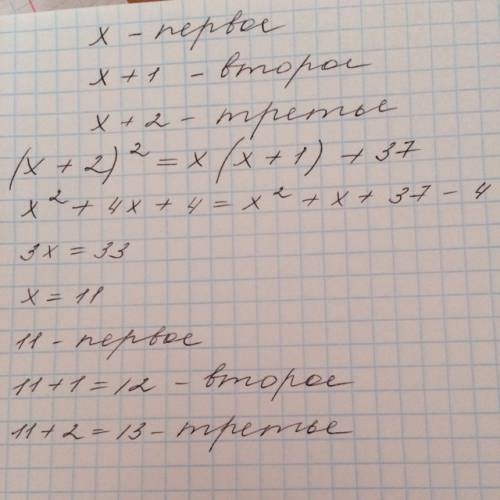 x - первое
x + 1 - второе
x + 2 - третье
(x + 2)² = x (x + 1) + 37
x² + 4x + 4 = x² + x + 37 - 4
3x = 33
x = 11
11 - первое
11 + 1 = 12 - второе
11 + 2 = 13 - третье